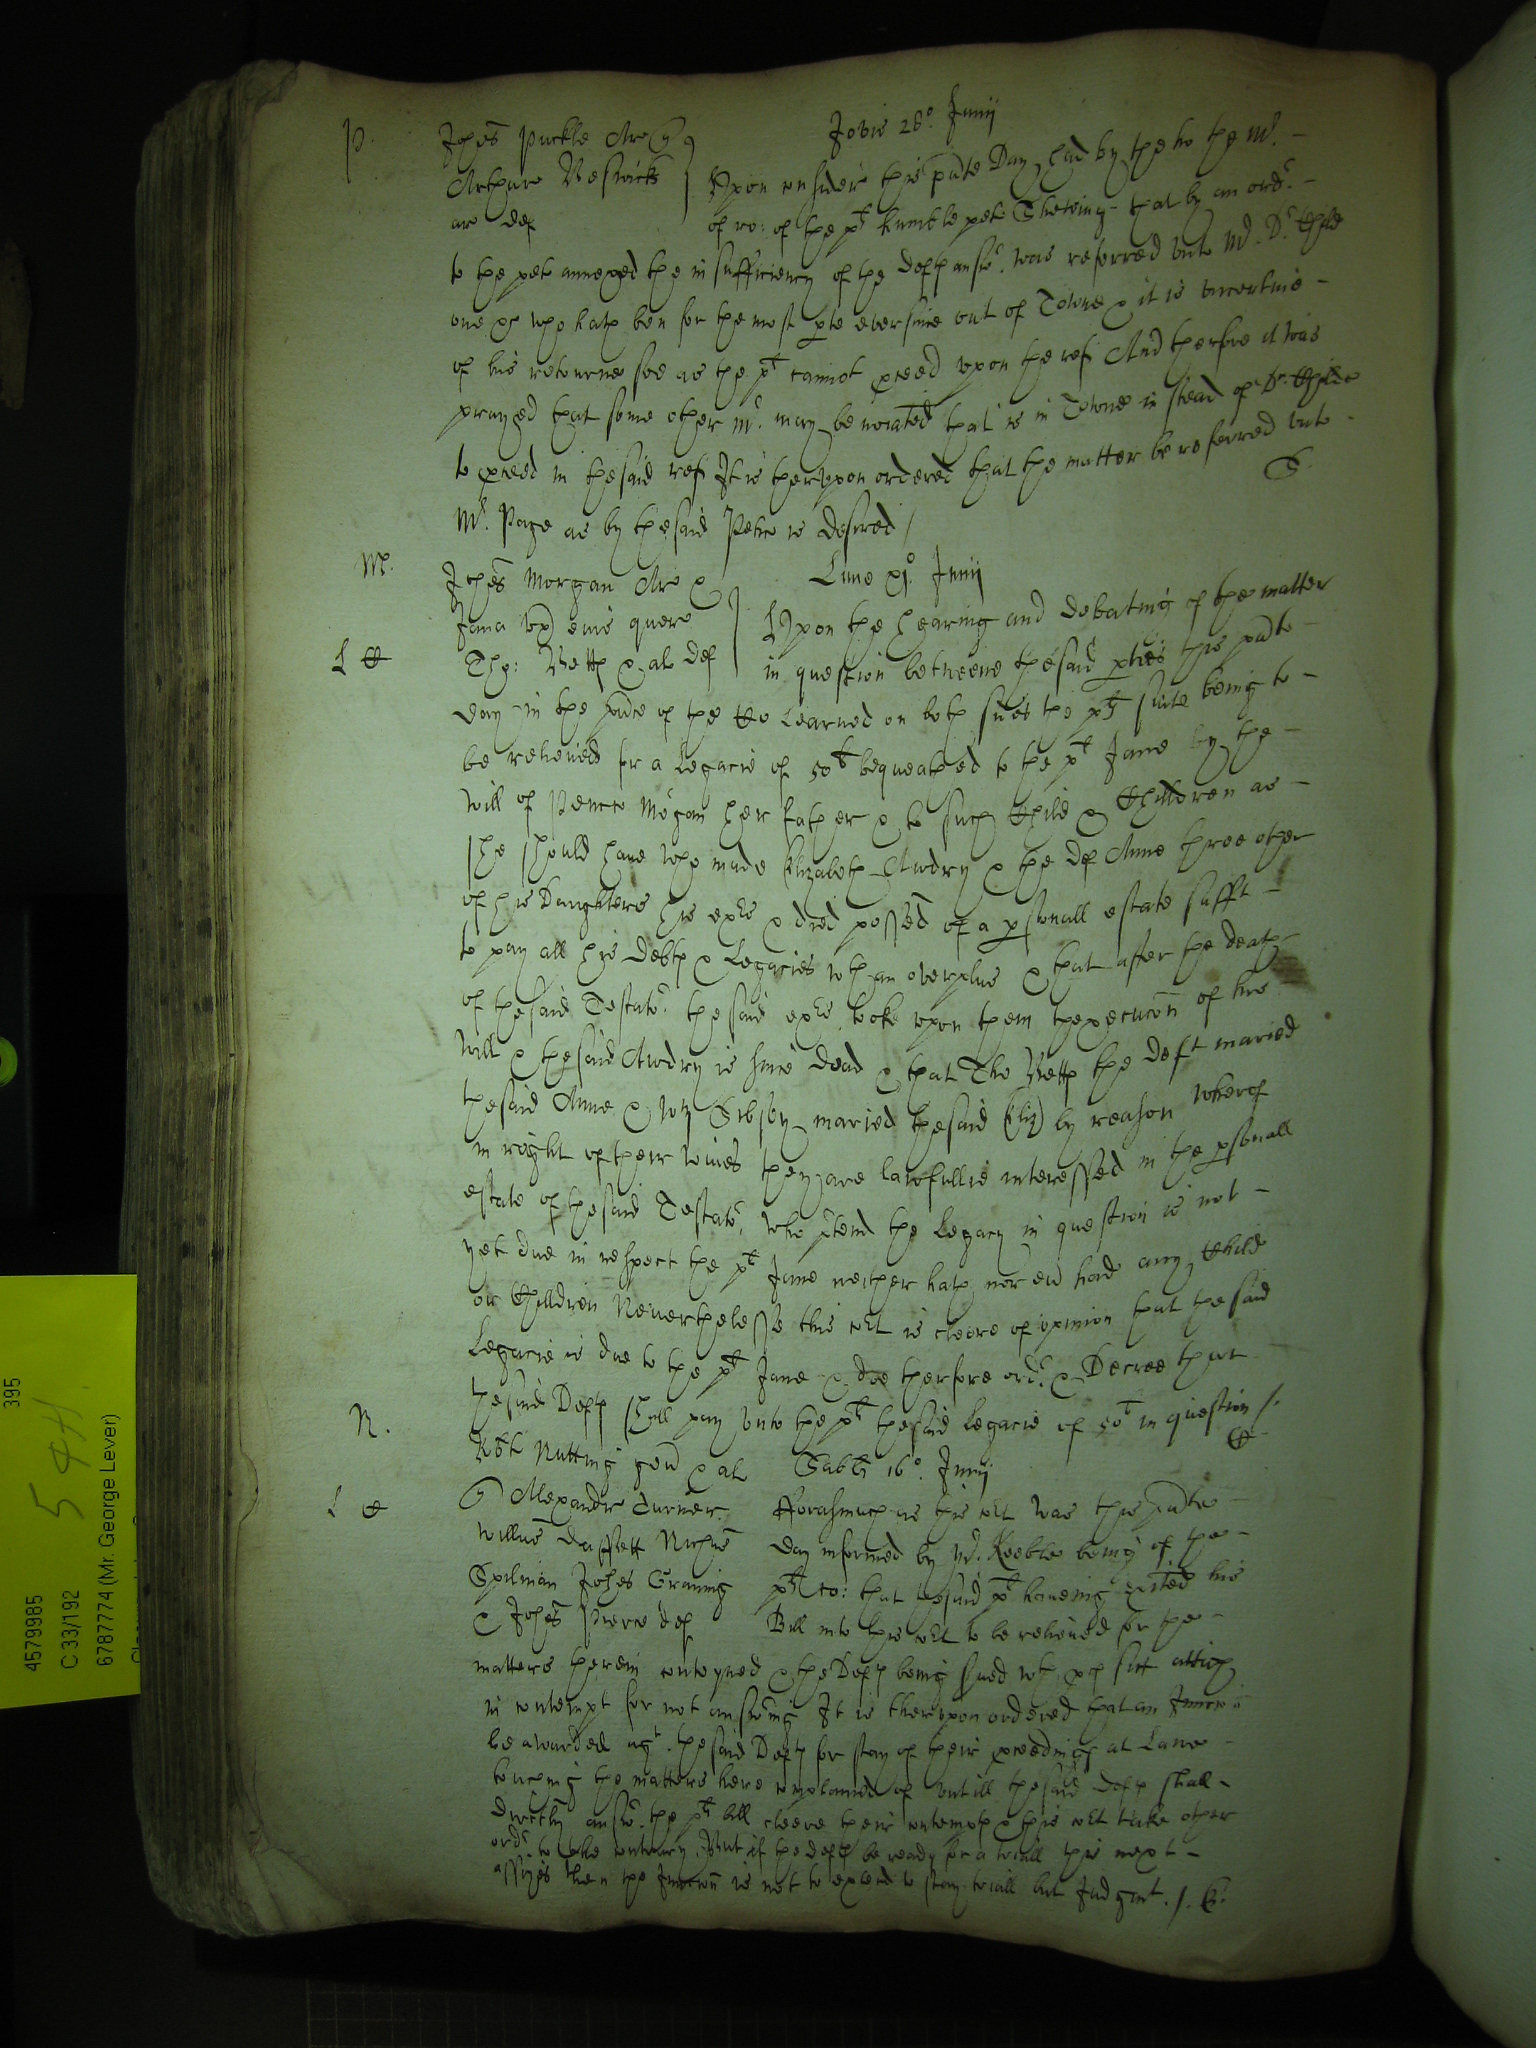 P. Johes Puckle Ar q
Jovis 28o. Junij
Arthure Beswicke
ar def
Upon consider this pnte Day had by the ho the Mr. of ro: of the pt humble peto Shewing that by an ordr.
to the peto annexed the insufficiency of the defts answr. was referred vnto Mr. Dr. Childe
one &c who hath ben for the most pte ever since out of Towne & it is uncertaine
of his retourne soe as the pt cannot pceed upon the refr And therfore it was
prayed that some other Mr. may be noiated that is in Towne in stead of Dr. Childe
to pceed in the said refr It is therupon ordered that the matter be referred vnto
Mr. Page as by the said Peticn is desired /
M. Johes Morgan Ar &
Lune xjo. Junij
Jana vx eius quer
Tho: Bett & al def
Upon the hearing and debating of the matter
in question betweene the said pties this pnte
day in the pnce of the Co Learned on both sides the pts suite being to
be relieued for a Legacie of 50l bequeathed to the pt Jane by the
will of Morgan her father & to such Child & Children as
she should haue who made Elizabeth Awdry & the def Anne three other
of his Daughters his exrs & died possed of a psonall estate sufft
to pay all his debts & Legacies wth an overplus & that after the death
of the said Testatr. the said exrs tooke upon them thexecucon of his
will & the said Awdry is since dead & that Tho Bett the deft maried
the said Anne & Wm Sibson maried the said Eliz by reason wherof
in right of their wiues they are lawfullie interessed in the psonall
estate of the said Testatr. who ptend the Legacy in question is not
yet due in respect the pt Jane neither hath nor ever had any Child
or Children Neuerthelesse this cort is cleere of opinion that the said
Legacie is due to the pt Jane & doe therfore ordr. & Decree that
the said Defts shall pay vnto the pt the said Legacie of 50l in question /.
N. Robt Nutting gen & al
Sabti 16o. Junij
q Alexandr Turner
Willus Dassett Nichus
Spilman Johes Graning
& Johes Pierce def
Forasmuch as this cort was this pnte
day informed by Mr. Keeble being of the
pts co: that the said pt haueing exited his
Bill into this cort to be relieued for the
matters therein conteyned & the Defts being serued wth pcs sitt attach
in contempt for not answering It is therupon ordered that an Iniunccon
be awarded agt. the said Defts for stay of their pceedings at Lawe
touching the matters here complained of vntill the said defts shall
directly answr. the pts bill cleere their contempts & this cort take other
ordr. to the contrary. But if the defts be ready for a triall this next
assizes then the Iniuncon is not to extend to stay triall but Judgmt. /.
395
5 & 4
4579985
C 33/192
6787774 (Mr. George Lever)